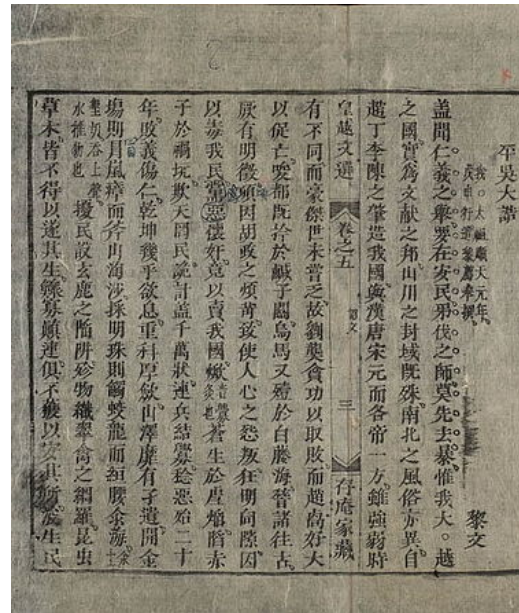 平吳大誥
我。太祖順天元年。
戊申行遣黎廌奉撰
黎文
盖聞仁義之舉要在安民弔伐之師莫先去暴惟我大。越
之國實爲文献之邦山川之封域旣殊南北之風俗亦異自
趙丁李陳之肇造我國與漢唐宋元而各帝一方雖強弱時
皇越文選 卷之五 誥文 三 存庵家藏
有不同而豪傑世未嘗乏故劉龑貪功以取敗而趙卨好大
以促亡唆都旣擒於鹹子關烏馬又殪於白藤海嵇諸往古
厥有明徵頃因胡政之煩苛致使人心之怨叛狂明伺隙因
以毒我民黨惡懷奸竟以賣我國焮蒼生於虐焰陷赤
子於禍坑欺天罔民詭計盖千萬狀連兵結釁稔惡殆二十
年敗義傷仁乾坤幾乎欲息重科厚歛山澤靡有孑遺開金
塲則冒嵐瘴而斧山淘沙採明珠則觸蛟龍而緪腰汆海汆土
墾切吞上聲水推物也擾民設玄鹿之陷阱殄物織翠禽之網羅昆虫
草木皆不得以遂其生鰥寡顛連俱不獲以安其所浚生民